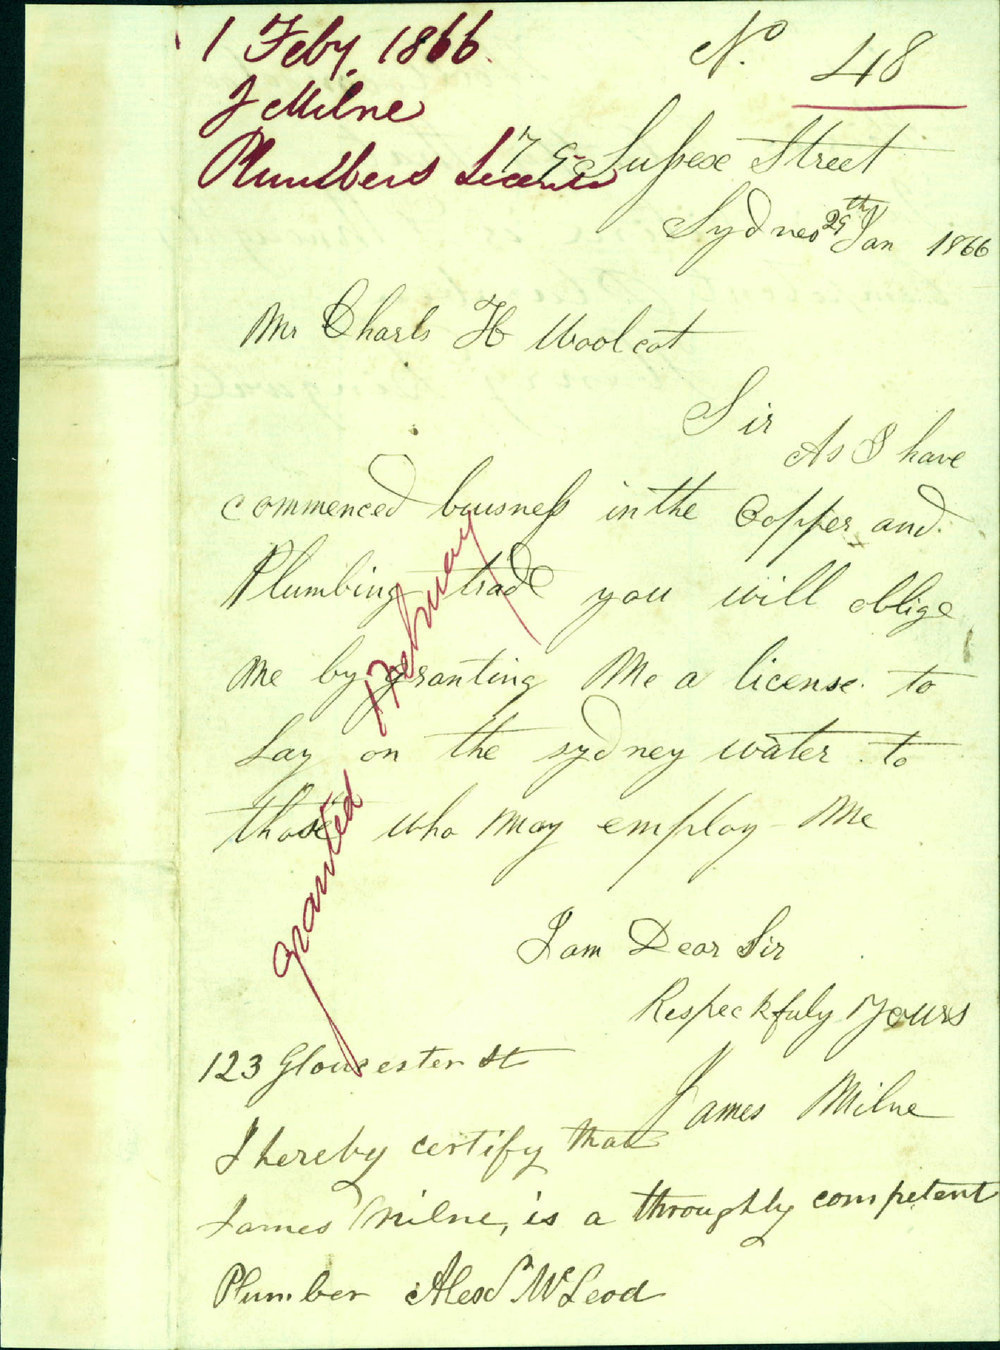 1 Feby. 1866
J Milne
Plumbers License
No. 48
79 Sussex Street
Sydney 29th Jan 1866
Mr Charls H Woolcot
Sir
As I have
commenced buisness in the Copper and
Plumbing trade you will oblige
me by granting Me a license to
Lay on the sydney water to
those who may employ Me
granted 1 Februay
I am Dear Sir
Respeckfuly Yours
James Milne
123 Gloucester St
I hereby certify that
James Milne, is a throughly competent
Plumber Alexr McLeod